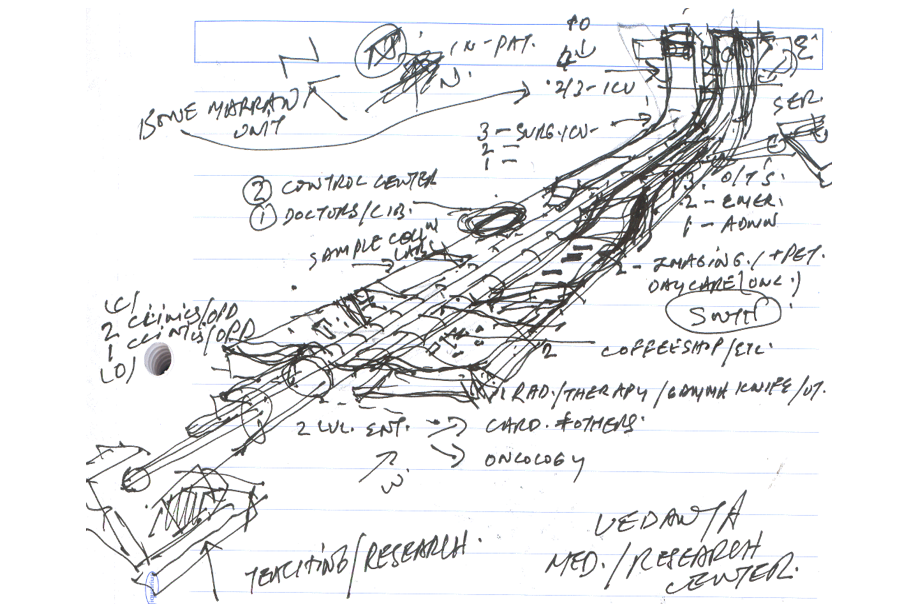 IN-PAT.
N.
TO
4
2/3-ICU
BONE MARRAW
UNIT
SER.
3 - SURG/CU-
2 -
1 -
② CONTROL CENTER
① DOCTORS/CIB.
SAMPLE COLLN
LABS
3. O/T'S.
2 - EMER.
1 - ADMN
2 - IMAGING./+PET.
DAYCARE (ONC.)
SOUTH
(C)
2 CLINICS/OPD
1 CLINICS/OPD
(O)
2
COFFEESHOP/ETC.
1 RAD./THERAPY/GAMMA KNIFE/OT.
2 LVL. ENT.
CARD. & OTHERS.
ONCOLOGY
W
TEACHING/RESEARCH.
VEDANTA
MED./RESEARCH
CENTER.